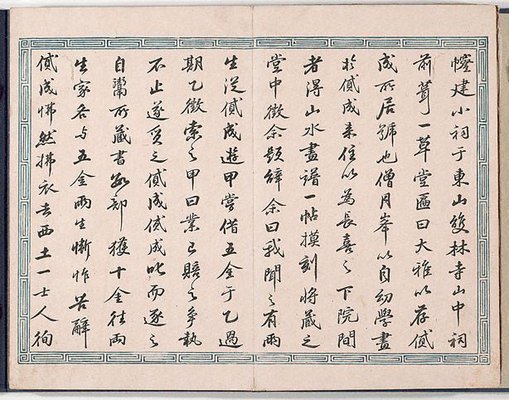 幢建小祠于東山雙林寺山中祠
前葺一草堂匾曰大雅以存貸
成所居號也僧月峯以自幼學畫
於貸成來住以為長喜之下院間
者得山水畫譜一帖摸刻將藏之
堂中徵余題辭余曰我聞之有兩
生從貸成遊甲嘗借五金于乙過
期乙徵索之甲曰業已賠之爭執
不止遂質之貸成貸成叱而逐之
自鬻所藏書數部獲十金往兩
生家各與五金兩生慚怍苦辭
貸成怫然拂衣去西土一士人徇